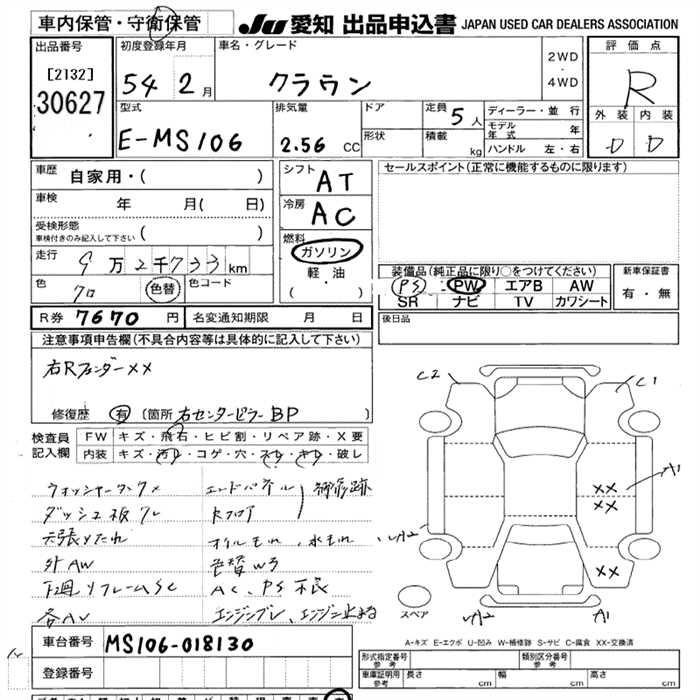 車内保管・守衛保管
JU 愛知 出品申込書 JAPAN USED CAR DEALERS ASSOCIATION
出品番号
[2132]
30627
初度登録年月
54 2月
車名・グレード
クラウン
2WD
・
4WD
評価点
R
外装 内装
D D
型式
E-MS106
排気量
2.56 CC
ドア
形状
定員 5人
積載 kg
ディーラー・並行
モデル年式 年
ハンドル 左・右
車歴 自家用・( )
車検 年 月( 日)
受検形態
車検付きのみ記入して下さい ( )
走行 9万2千733km
色 クロ 色替 色コード
R券 7670円 名変通知期限 月 日
シフト AT
冷房 AC
燃料
ガソリン
軽・油
( ・ )
セールスポイント(正常に機能するものに限ります)
装備品(純正品に限り○をつけてください)
PS PW エアB AW
SR ナビ TV カワシート
新車保証書
有・無
後日品
注意事項申告欄(不具合内容等は具体的に記入して下さい)
右Rフェンダー××
修復歴 有 (箇所 右センターピラー BP )
検査員記入欄
FW キズ・飛石・ヒビ割・リペア跡・X要
内装 キズ・汚レ・コゲ・穴・スレ・キレ・破レ
ウォッシャータンク× エンドパネル 補修跡
ダッシュ板ワレ Rフロア
天張りたれ オイルもれ、水もれ
外AW 色替W3
下廻りフレームSC AC、PS不良
エンジンブレ、エンジン止まる
C2 C1
A1
××
××
××
A1
スペア
A-キズ E-エクボ U-凹み W-補修跡 S-サビ C-腐食 XX-交換済
車台番号 MS106-018130
登録番号
形式指定番号 参考
類別区分番号 参考
車庫証明用 参考 長さ cm 幅 cm 高さ cm